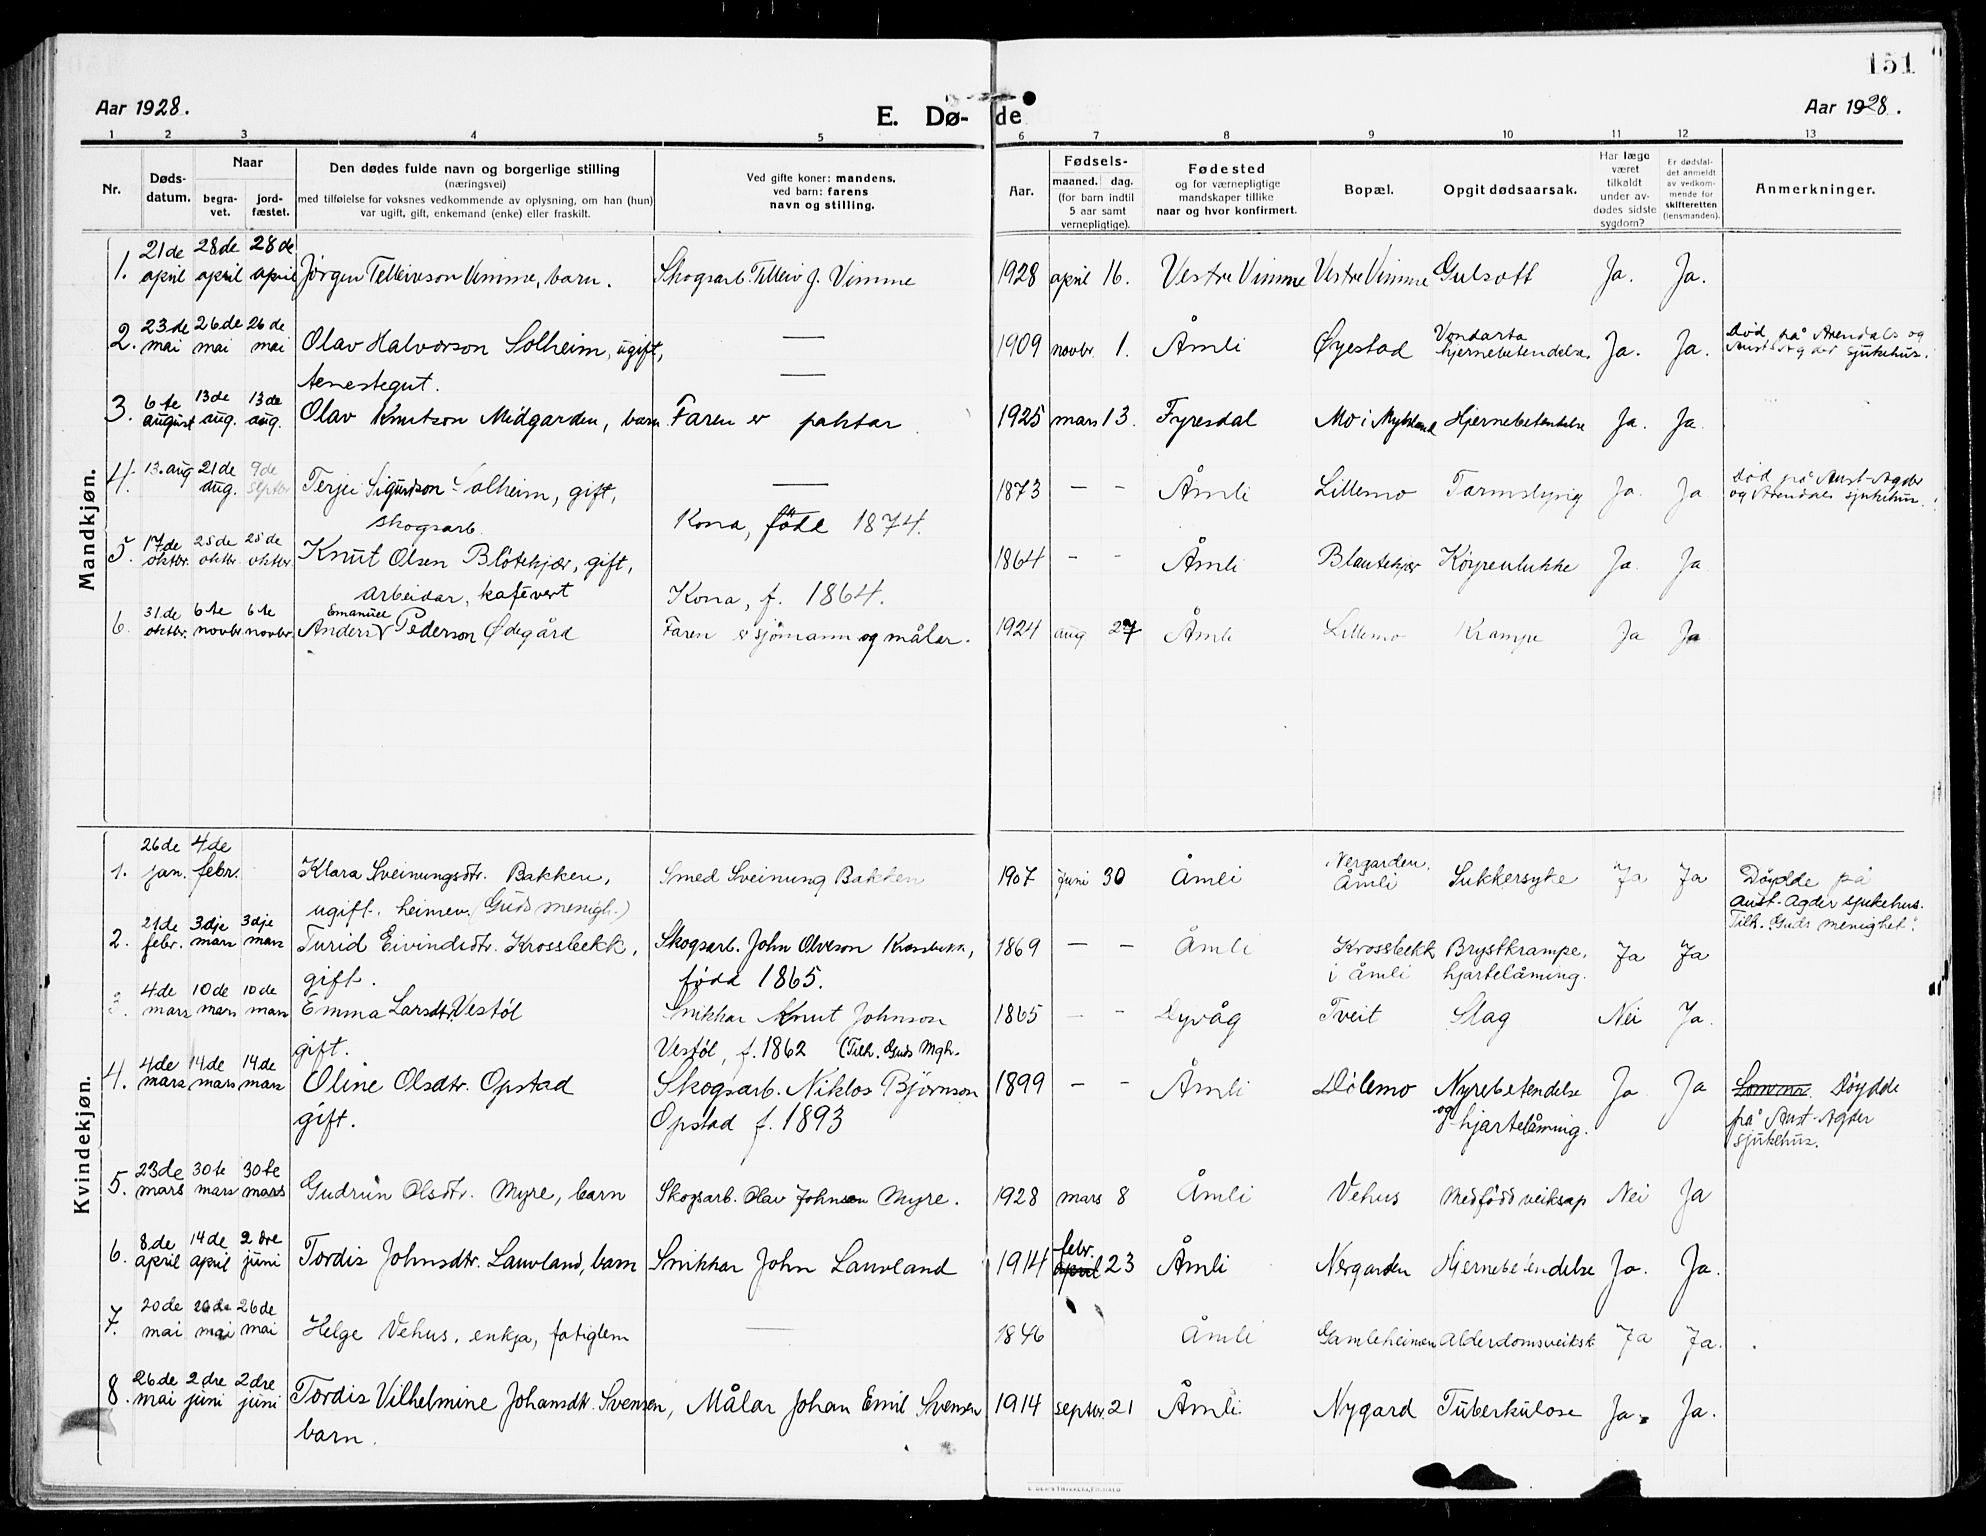 151
Aar 1928.
E. Dø- de
Aar 1928.
1 2 3 4 5 6 7 8 9 10 11 12 13
Nr.
Døds-
datum.
Naar
begra-
vet.
jord-
fæstet.
Den dødes fulde navn og borgerlige stilling
(næringsvei)
med tilføielse for voksnes vedkommende av oplysning, om han (hun)
var ugift, gift, enkemand (enke) eller fraskilt.
Ved gifte koner: mandens,
ved barn: farens
navn og stilling.
Aar.
Fødsels-
maaned. dag.
(for barn indtil
5 aar samt
vernepligtige).
Fødested
og for værnepligtige
mandskaper tillike
naar og hvor konfirmert.
Bopæl.
Opgit dødsaarsak.
Har læge
været
tilkaldt
under av-
dødes sidste
sygdom?
Er dødsfal-
det anmeldt
av vedkom-
mende for
skifteretten
(lensmanden).
Anmerkninger.
Mandkjøn.
21de 28de 28de
1. april april april Jørgen Tellevson Vimme, barn. Skogsarb. Tellev J. Vimme 1928 april 16. Vestre Vimme Vestre Vimme Gulsott Ja. Ja.
23de 26de 26de
2. mai mai mai Olav Halvorson Solheim, ugift, — 1909 novbr 1. Åmli Øyestad Vondarta hjernebetendelse. Ja. Ja. død på Arendals og
Aust-Agder sjukehus.
tenestegut. —
6te 13de 13de
3. august aug. aug. Olav Knutson Midgarden, barn. Faren er paktar 1925 mars 13. Fyresdal Mo i Mykland Hjernebetendelse Ja. Ja.
13. aug 21de 9de
4. aug. septbr Terje Sigurdson Solheim, gift, — 1873 - - Åmli Lillemo Tarmslyng Ja. Ja død på Aust-Agder
og Arendals sjukehus.
skogsarb Kona, föde 1874.
17de 25de 25de
5. oktbr. oktbr. oktbr Knut Olsen Blötekjær, gift, 1864 - - Åmli Blautekjær Ja. Ja
arbeidar, kafevert Kona, f. 1864.
31de 6te 6te Emanuel
6. oktbr. novbr novbr Anders Pederson Ødegård Faren sjömann og målar. 1924 aug 27 Åmli Lillemo Krampe Ja Ja
Kvindekjøn.
26de 4de
1. jan. febr. Klara Sveinungsdtr. Bakken, Smed Sveinung Bakken 1907 juni 30 Åmli Nergarden, Åmli Sukkersyke Ja Ja Döydde på
Aust-Agder sjukehus.
Tilh. Guds menighet.
ugift. heimev. (Guds menigh.)
21de 3dje 3dje
2. febr. mars mars Turid Eivindsdtr. Krossbekk, Skogsarb. John Olveson Krossbekk, 1869 - - Åmli Krossbekk Brystkrampe, Ja Ja
gift. född 1865. i Åmli hjartelåming.
4de 10de 10de
3. mars mars mars Emma Larsdtr. Vestöl Snikkar Knut Johnson 1865 - - Dyvåg Tveit Slag Nei Ja.
gift. Vestöl, f. 1862 (Tilh. Guds mgh.
4de 14de 14de
4. mars mars mars Oline Olsdtr. Opstad Skogsarb. Niklos Björnson 1899 - - Åmli Dölemo Nyrebetendelse Ja Ja Döydde
på Aust-Agder
sjukehus.
gift. Opstad f. 1893 og hjartelåming.
23de 30te 30te
5. mars mars mars Gudrun Olsdtr. Myre, barn Skogsarb. Olav Johnsen Myre. 1928 mars 8 Åmli Vehus Medfödd veiksap Nei Ja
8de 14de 2dre febr.
6. april april juni Tordis Johnsdtr. Lauvland, barn Snikkar John Lauvland 1914 april 23 Åmli Nergarden Hjernebetendelse Ja. Ja.
20de 26de 26de
7. mai mai mai Helge Vehus, enkja, fatiglem — 1846 Åmli Gamleheimen Alderdomsveiksk Ja Ja.
26de 2dre 2dre
8. mai juni juni Tordis Vilhelmine Johansdtr. Svensen, Målar Johan Emil Svensen 1914 septbr. 21 Åmli Nygard Tuberkulose Ja. Ja.
barn.